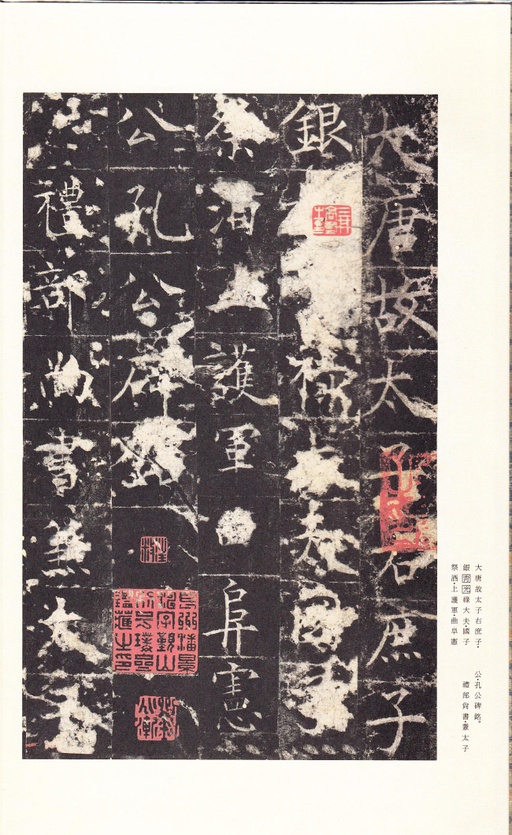 大唐故太子右庶子
銀祿大夫國子
祭酒上護軍曲阜憲
公孔公碑銘
禮部尚書兼太子
大唐故太子右庶子・
銀青光祿大夫・國子
祭酒・上護軍・曲阜憲
公・孔公碑銘。
禮部尚書・兼太子